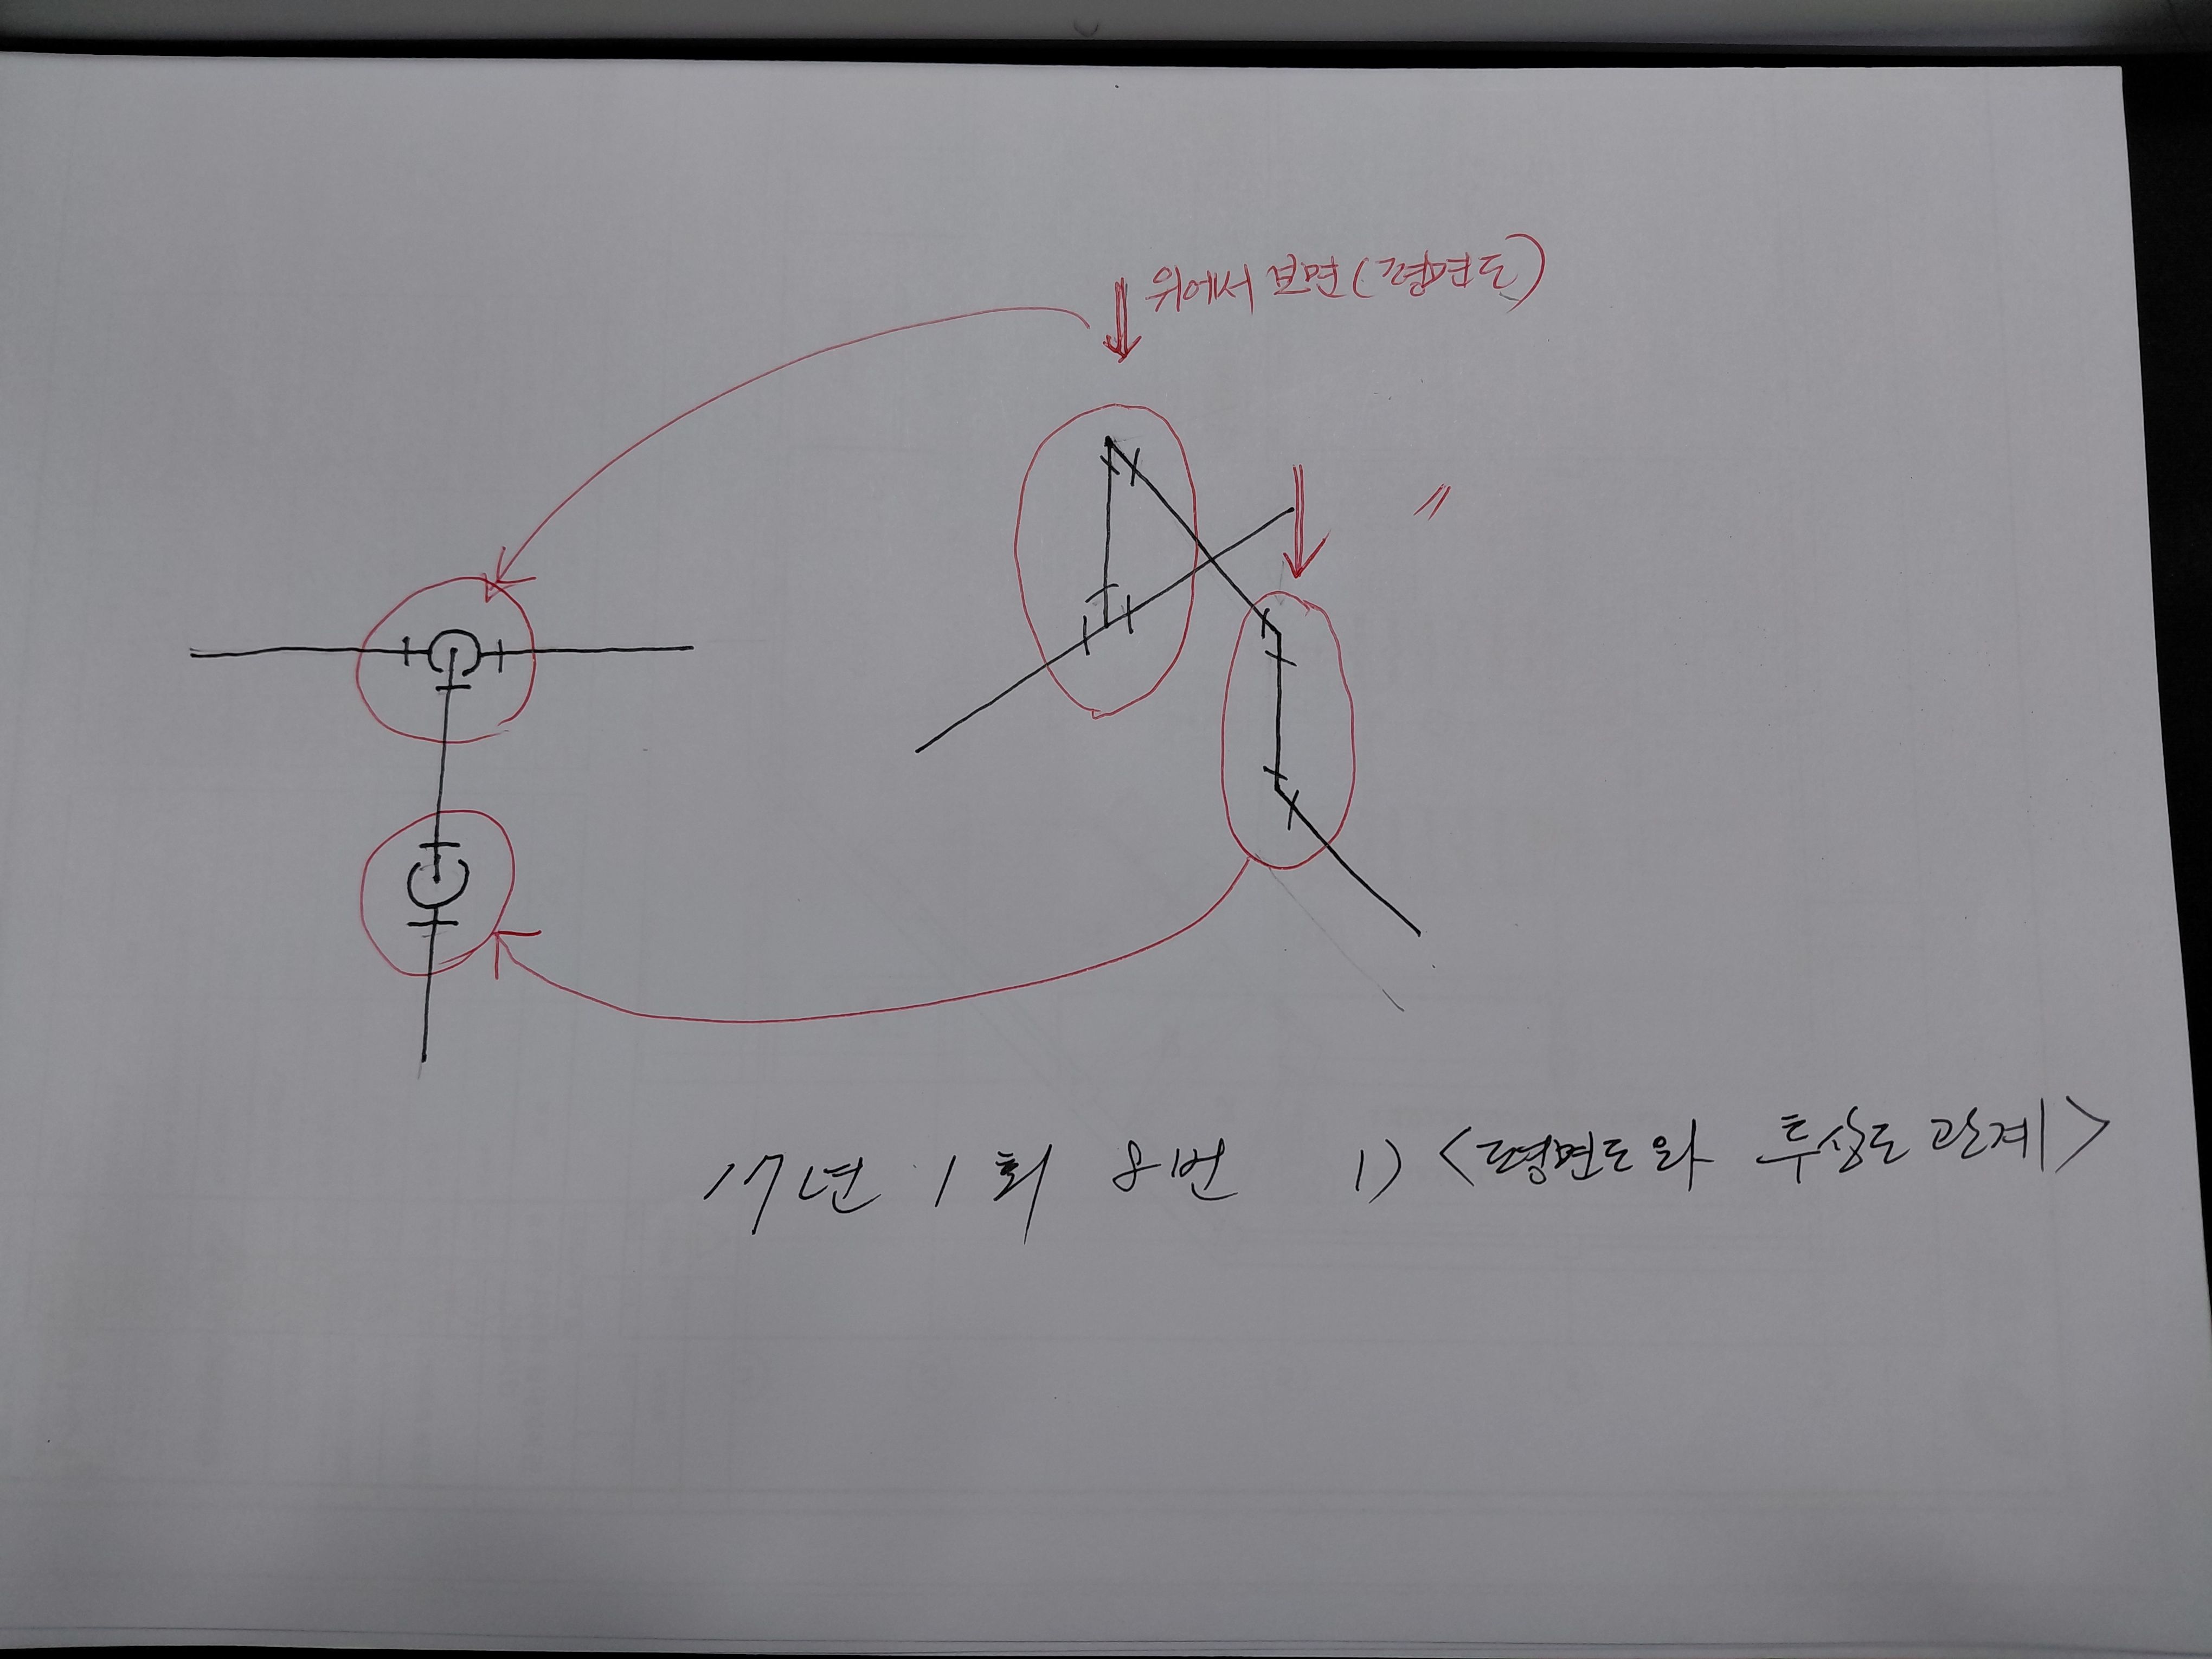 위에서 보면 (평면도)
〃
17년 1회 8번 1) <평면도와 투상도 관계>